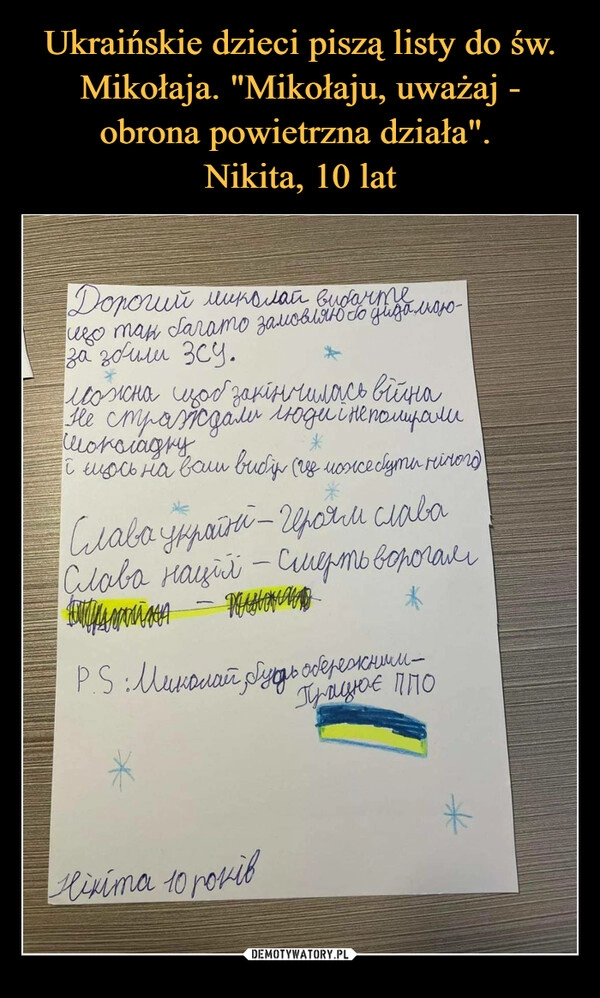 Ukraińskie dzieci piszą listy do św.
Mikołaja. "Mikołaju, uważaj -
obrona powietrzna działa".
Nikita, 10 lat
Дорогий миколай вибачте
що так багато замовляю бо
за збили ЗСУ.
можна щоб закінчилась війна
Не страждали люди і не помирали
шоколадку
і щось на ваш вибір (це може бути нічого)
Слава україні – героям слава
Слава нації – Смерть ворогам
P.S : Миколай, будь обережним –
Працює ППО
Нікіта 10 років
DEMOTYWATORY.PL